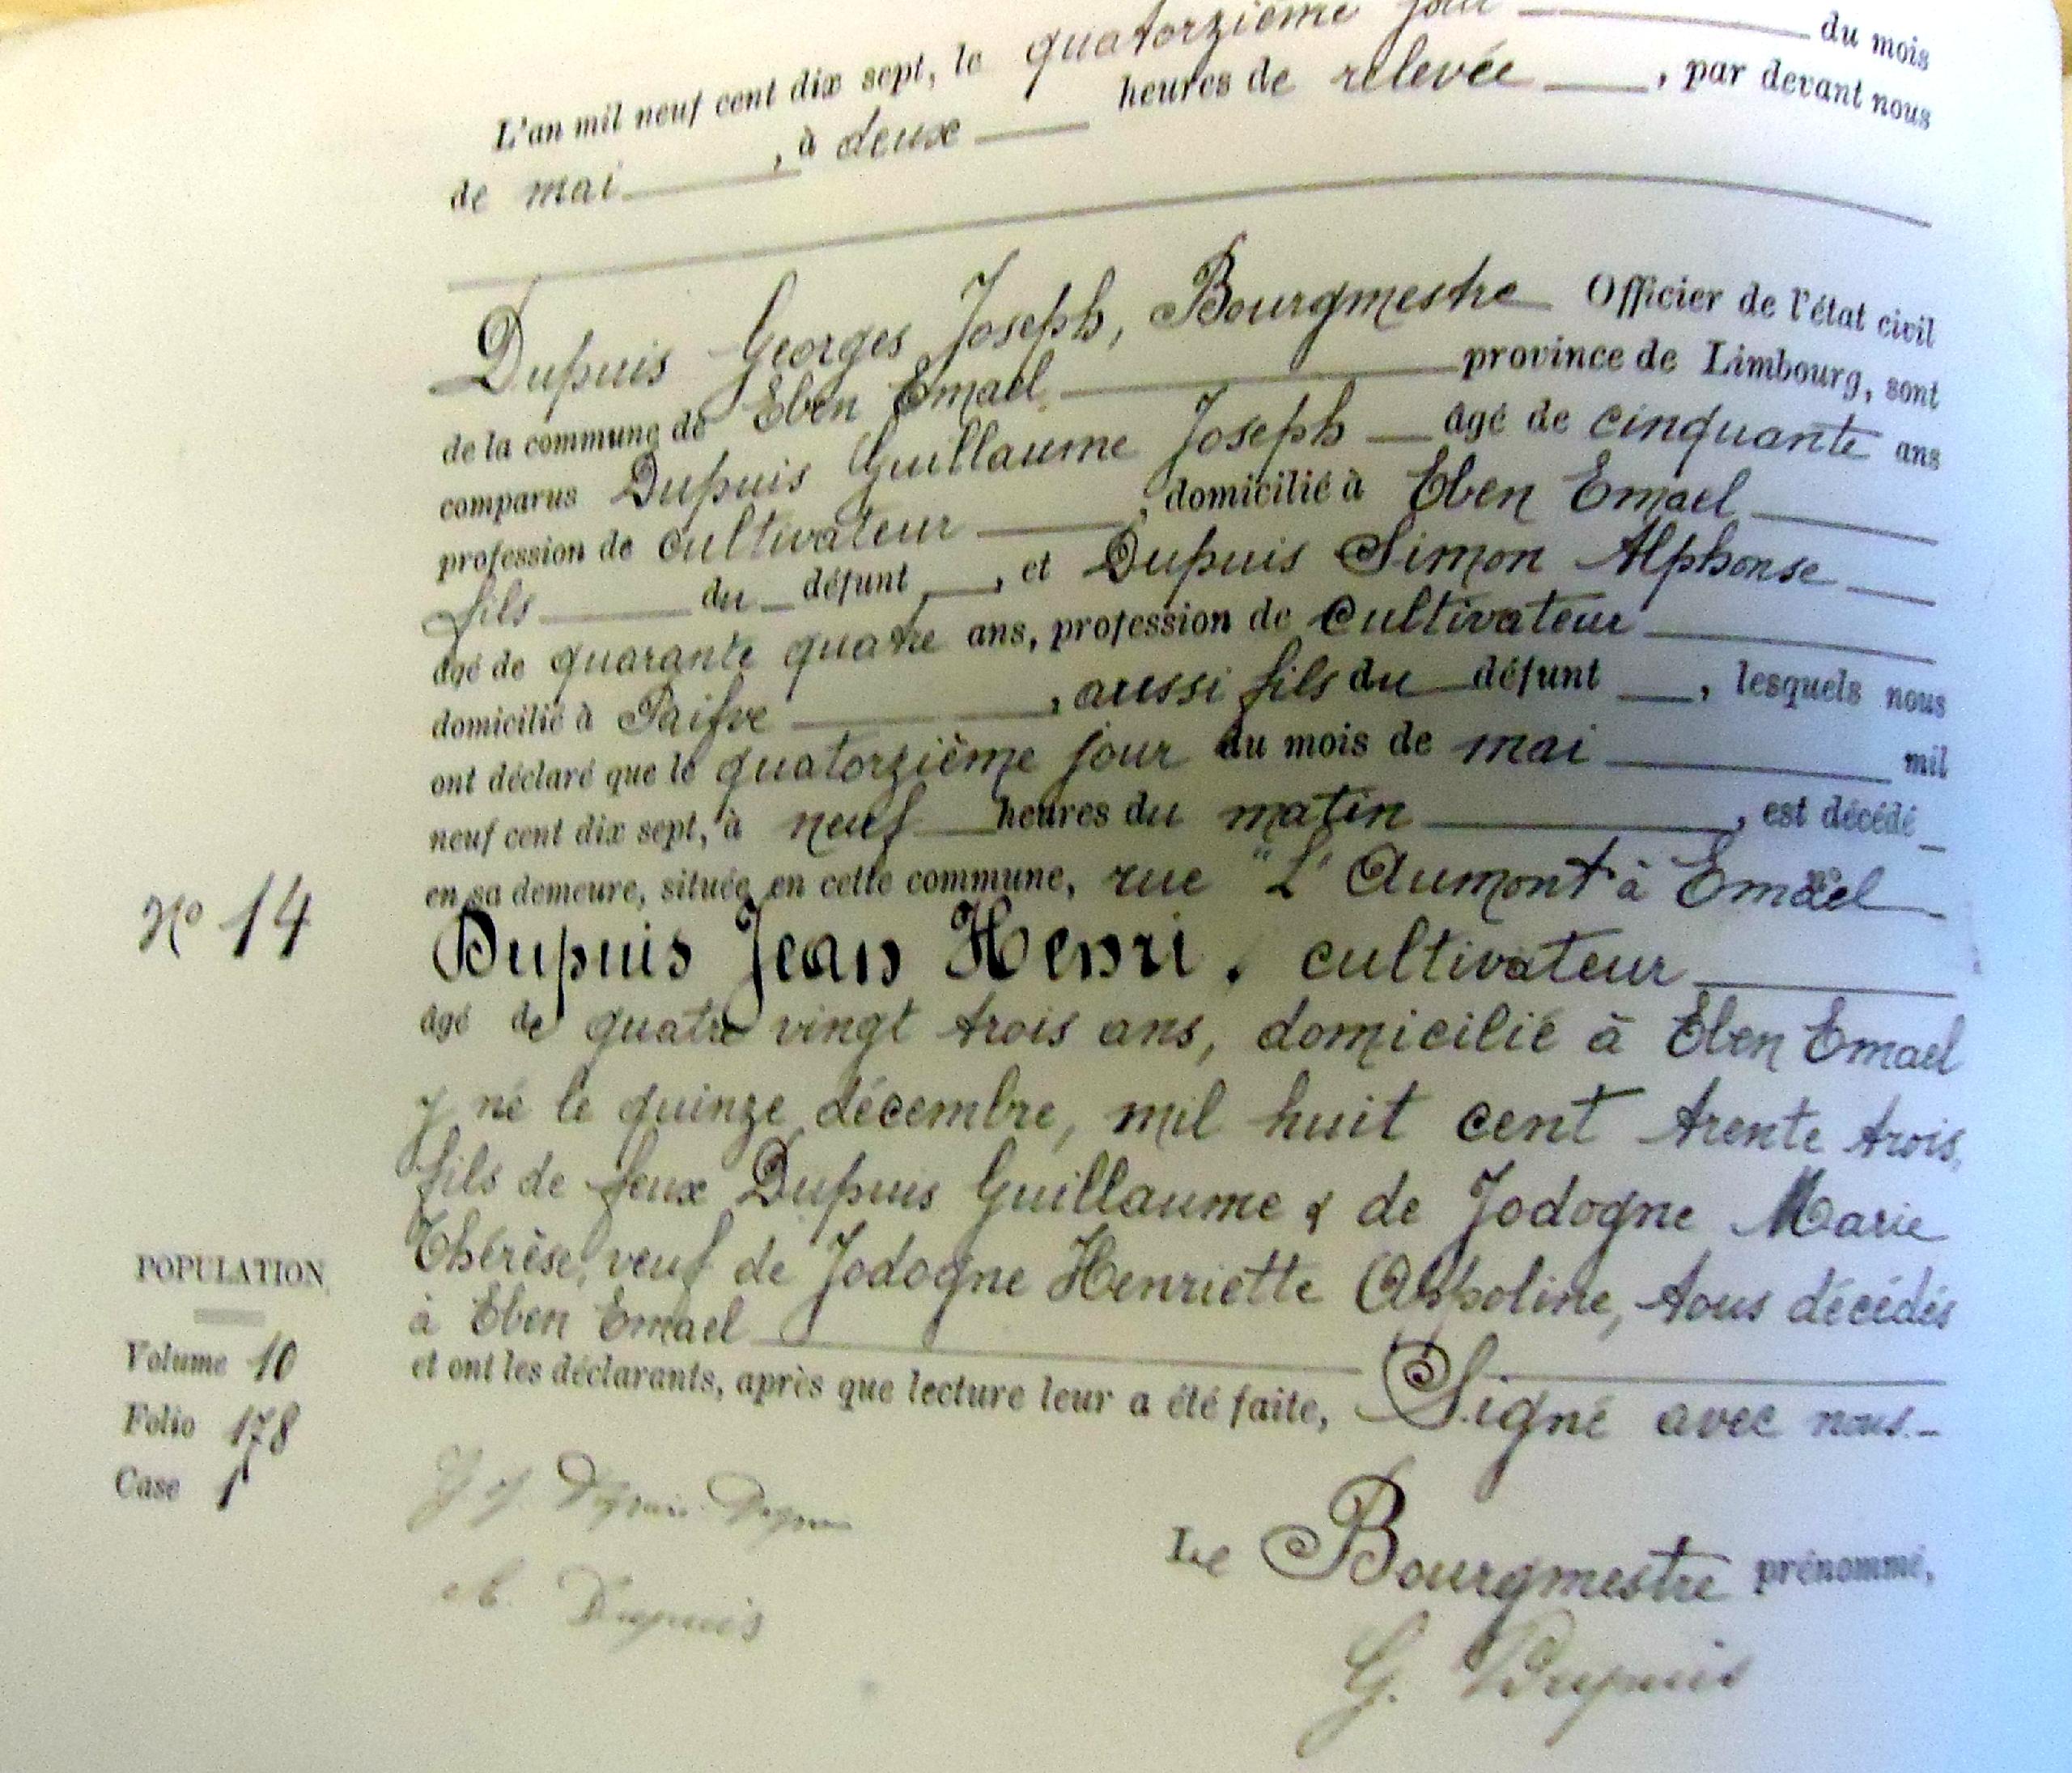 L'an mil neuf cent dix sept, le quatorzième jour du mois
de mai, à deux heures de relevée, par devant nous
Dupuis Georges Joseph, Bourgmestre Officier de l'état civil
de la commune de Eben Emael province de Limbourg, sont
comparus Dupuis Guillaume Joseph âgé de cinquante ans
profession de cultivateur, domicilié à Eben Emael
fils du défunt, et Dupuis Simon Alphonse
âgé de quarante quatre ans, profession de cultivateur
domicilié à Paifve, aussi fils du défunt, lesquels nous
ont déclaré que le quatorzième jour du mois de mai mil
neuf cent dix sept, à neuf heures du matin, est décédé
en sa demeure, située en cette commune, rue "L'Aumont à Emael
N° 14
Dupuis Jean Henri, cultivateur
âgé de quatre vingt trois ans, domicilié à Eben Emael
y né le quinze décembre, mil huit cent trente trois,
fils de feux Dupuis Guillaume & de Jodogne Marie
Thérèse, veuf de Jodogne Henriette Appoline, tous décédés
à Eben Emael
et ont les déclarants, après que lecture leur a été faite, Signé avec nous.-
POPULATION
Volume 10
Folio 178
Case 1
Dupuis
Le Bourgmestre prénommé,
G. Dupuis